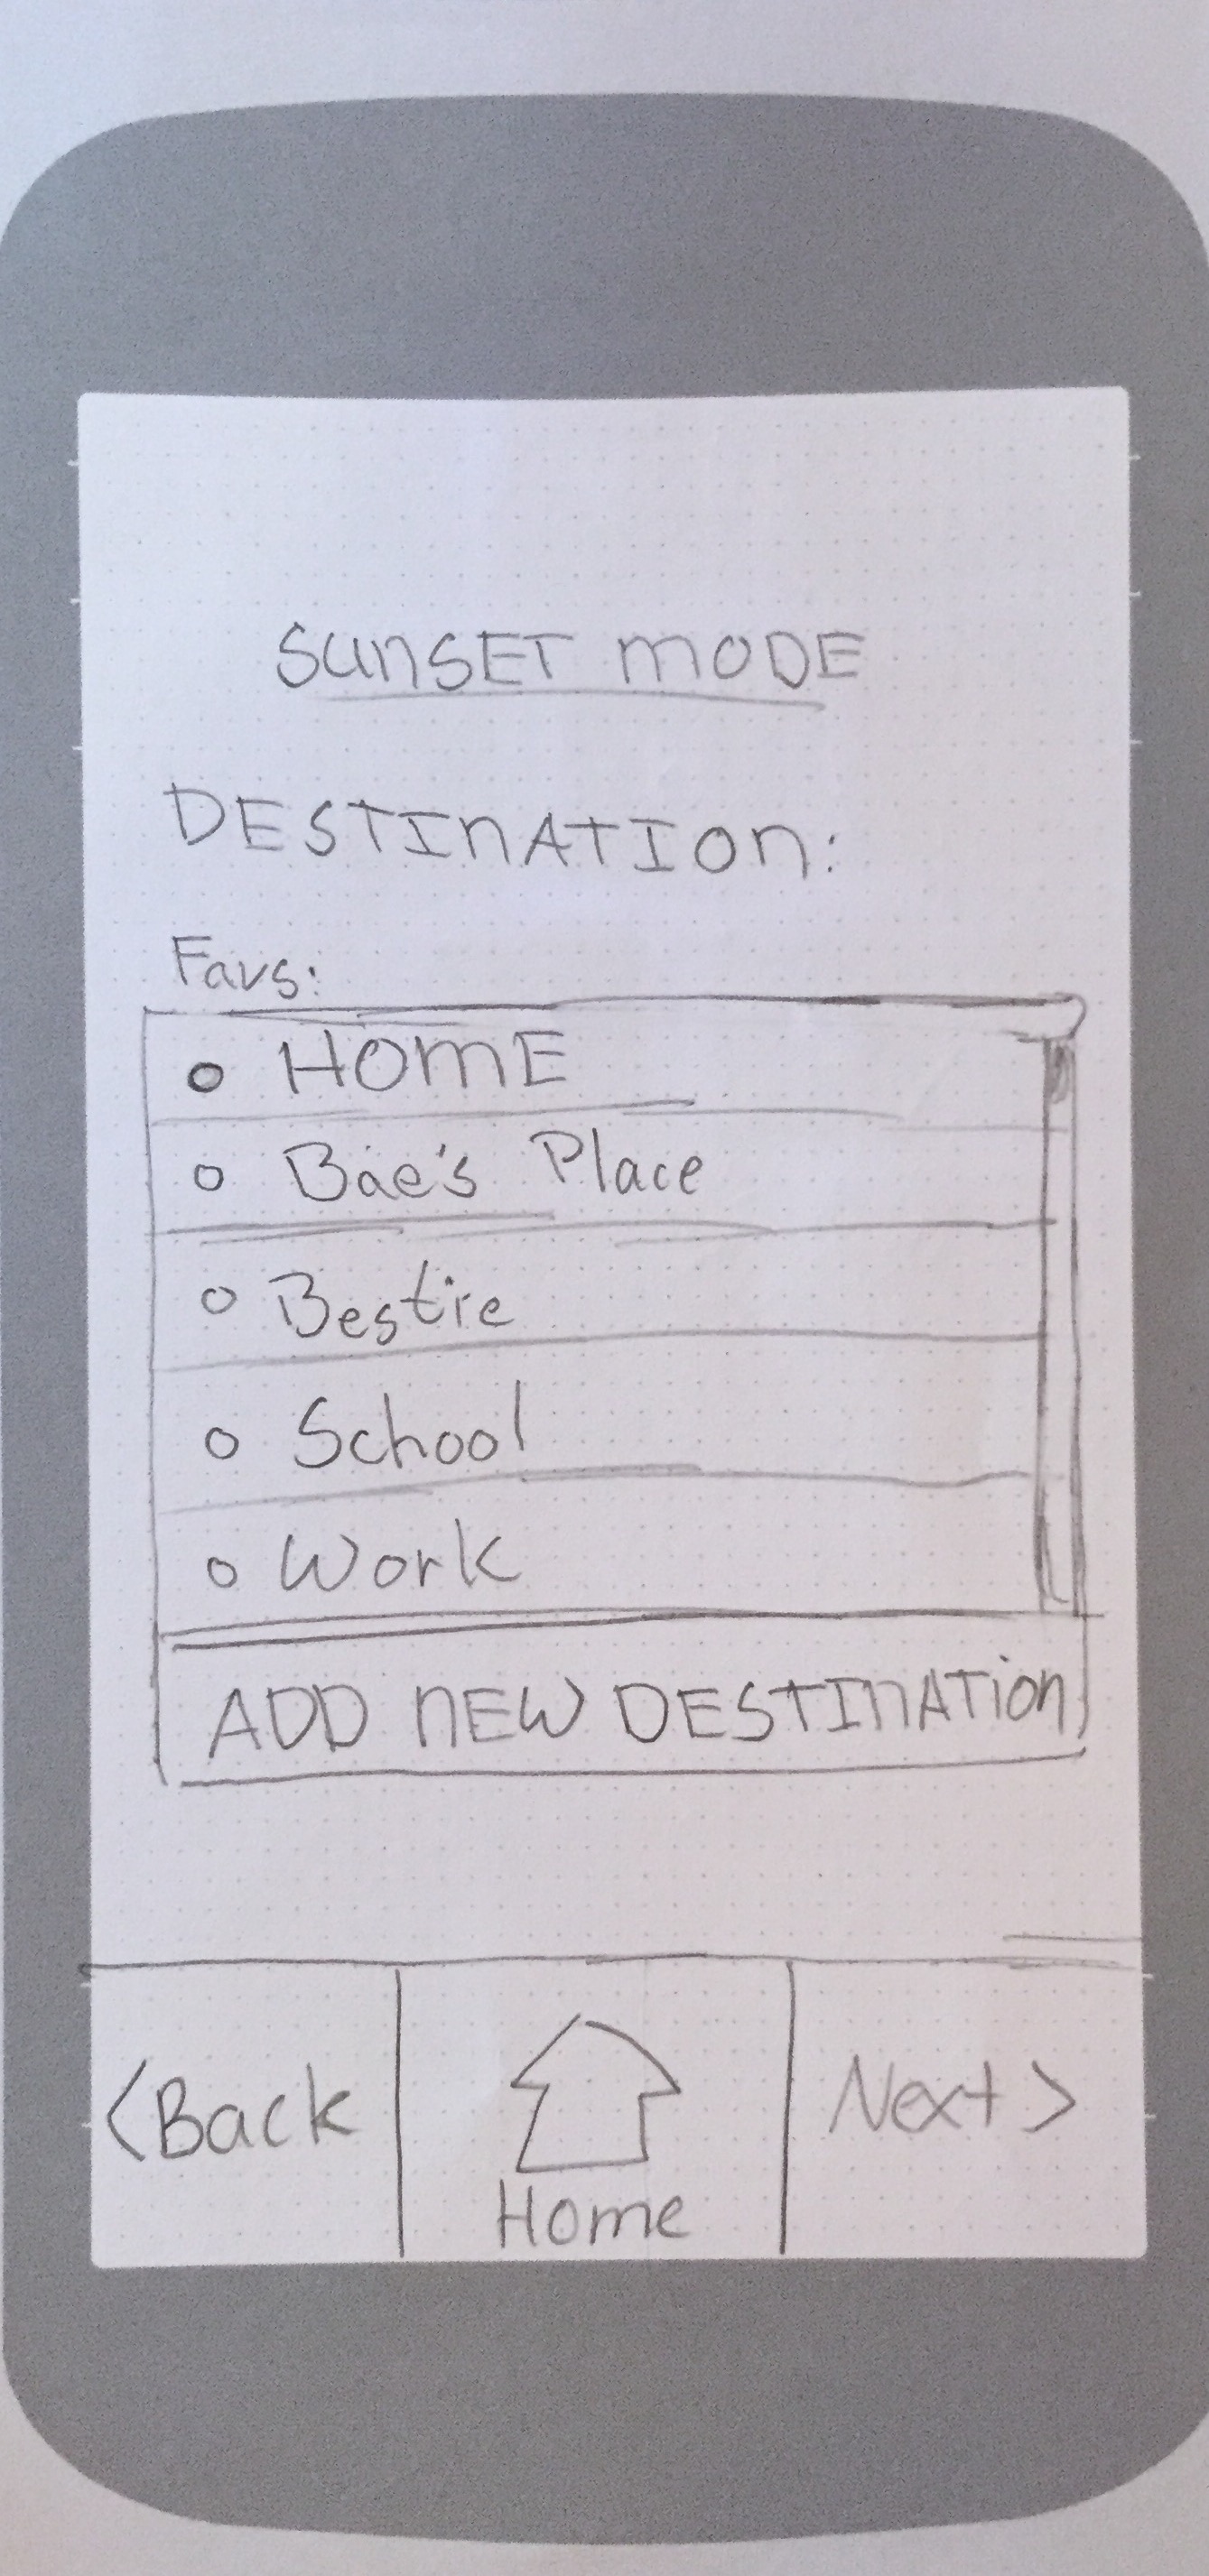 SUNSET MODE
DESTINATION:
Favs:
HOME
Bae's Place
Bestie
School
Work
ADD NEW DESTINATION
<Back
Home
Next >